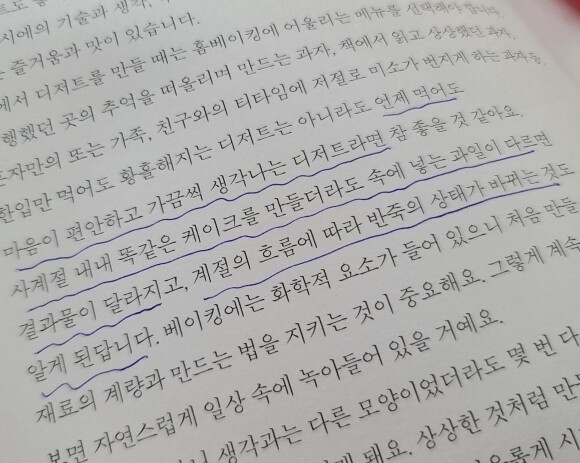 시에의 기술과 생각,
즐거움과 맛이 있습니다.
에서 디저트를 만들 때는 홈베이킹에 어울리는 메뉴를 선택해야 합니다.
행했던 곳의 추억을 떠올리며 만드는 과자, 책에서 읽고 상상했던 과자,
혼자만의 또는 가족, 친구와의 티타임에 저절로 미소가 번지게 하는 과자 등,
한입만 먹어도 황홀해지는 디저트는 아니라도 언제 먹어도
마음이 편안하고 가끔씩 생각나는 디저트라면 참 좋을 것 같아요.
사계절 내내 똑같은 케이크를 만들더라도 속에 넣는 과일이 다르면
결과물이 달라지고, 계절의 흐름에 따라 반죽의 상태가 바뀌는 것도
알게 된답니다. 베이킹에는 화학적 요소가 들어 있으니 처음 만들
재료의 계량과 만드는 법을 지키는 것이 중요해요. 그렇게 계속
보면 자연스럽게 일상 속에 녹아들어 있을 거예요.
생각과는 다른 모양이었더라도 몇 번 다
돼요. 상상한 것처럼 만들